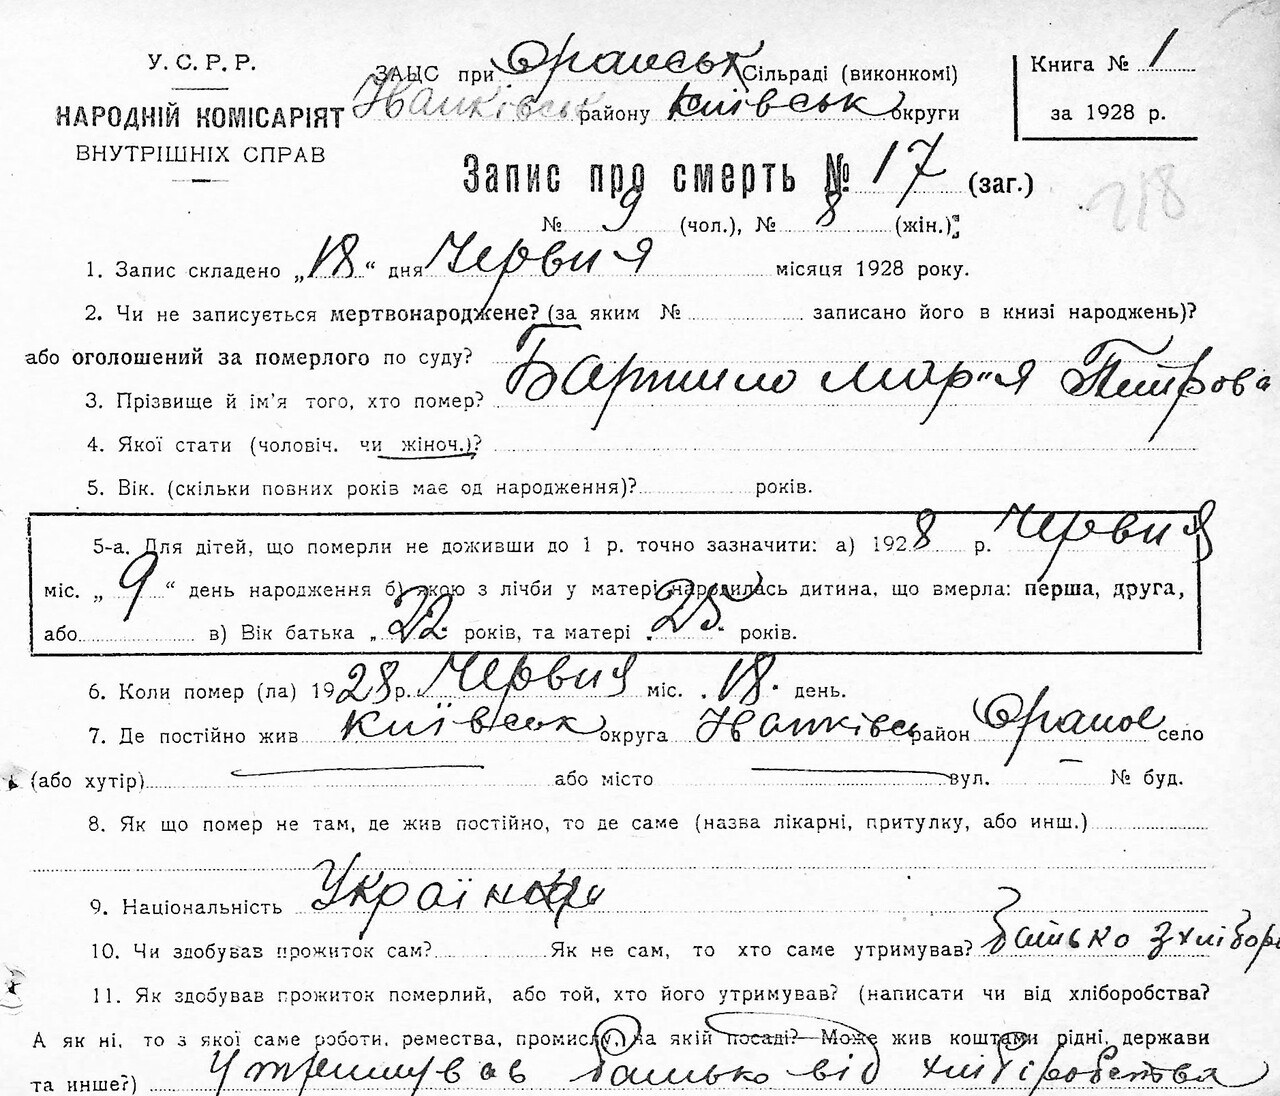 У. С. Р. Р.
НАРОДНІЙ КОМІСАРІЯТ
ВНУТРІШНІХ СПРАВ
ЗАГС при Оранськ Сільраді (виконкомі)
районy Київськ округи
Книга № 1
за 1928 р.
Запис про смерть № 17 (заг.)
№ 9 (чол.), № 8 (жін.)
218
1. Запис складено „18“ дня Червня місяця 1928 року.
2. Чи не записується мертвонароджене? (за яким № записано його в книзі народжень)?
або оголошений за померлого по суду?
3. Прізвище й ім’я того, хто помер? Мар"я Петрова
4. Якої стати (чоловіч. чи жіноч.)?
5. Вік. (скільки повних років має од народження)? років.
5-а. Для дітей, що померли не доживши до 1 р. точно зазначити: а) 1928 р. Червня
міс. „9“ день народження б) якою з лічби у матері народилась дитина, що вмерла: перша, друга,
або в) Вік батька „22 років, та матері 25 років.
6. Коли помер (ла) 1928 р. Червня міс. 18 день.
7. Де постійно жив Київськ округа район Оране село
(або хутір) або місто вул. — № буд.
8. Як що помер не там, де жив постійно, то де саме (назва лікарні, притулку, або инш.)
9. Національність
10. Чи здобував прожиток сам? Як не сам, то хто саме утримував? батько з хлібор
11. Як здобував прожиток померлий, або той, хто його утримував? (написати чи від хліборобства?
А як ні, то з якої саме роботи, ремества, промислу, на якій посаді? Може жив коштами рідні, держави
та инше?) Утримував батько від хліборобства